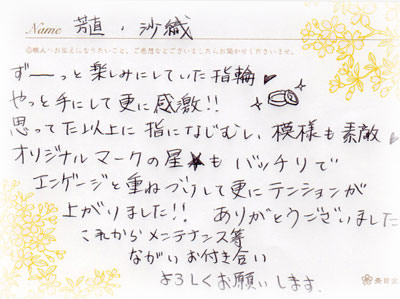 Name 芳直・沙織
◎職人へお伝えになりたいこと、ご感想などございましたらお聞かせくださいませ。
ず〜っと楽しみにしていた指輪♥
やっと手にして更に感激!!
思ってた以上に指になじむし、模様も素敵♥
オリジナルマークの星★もバッチリで
エンゲージと重ねづけして更にテンションが
上がりました!! ありがとうございました
これからメンテナンス等
ながいお付き合い
よろしくお願いします。